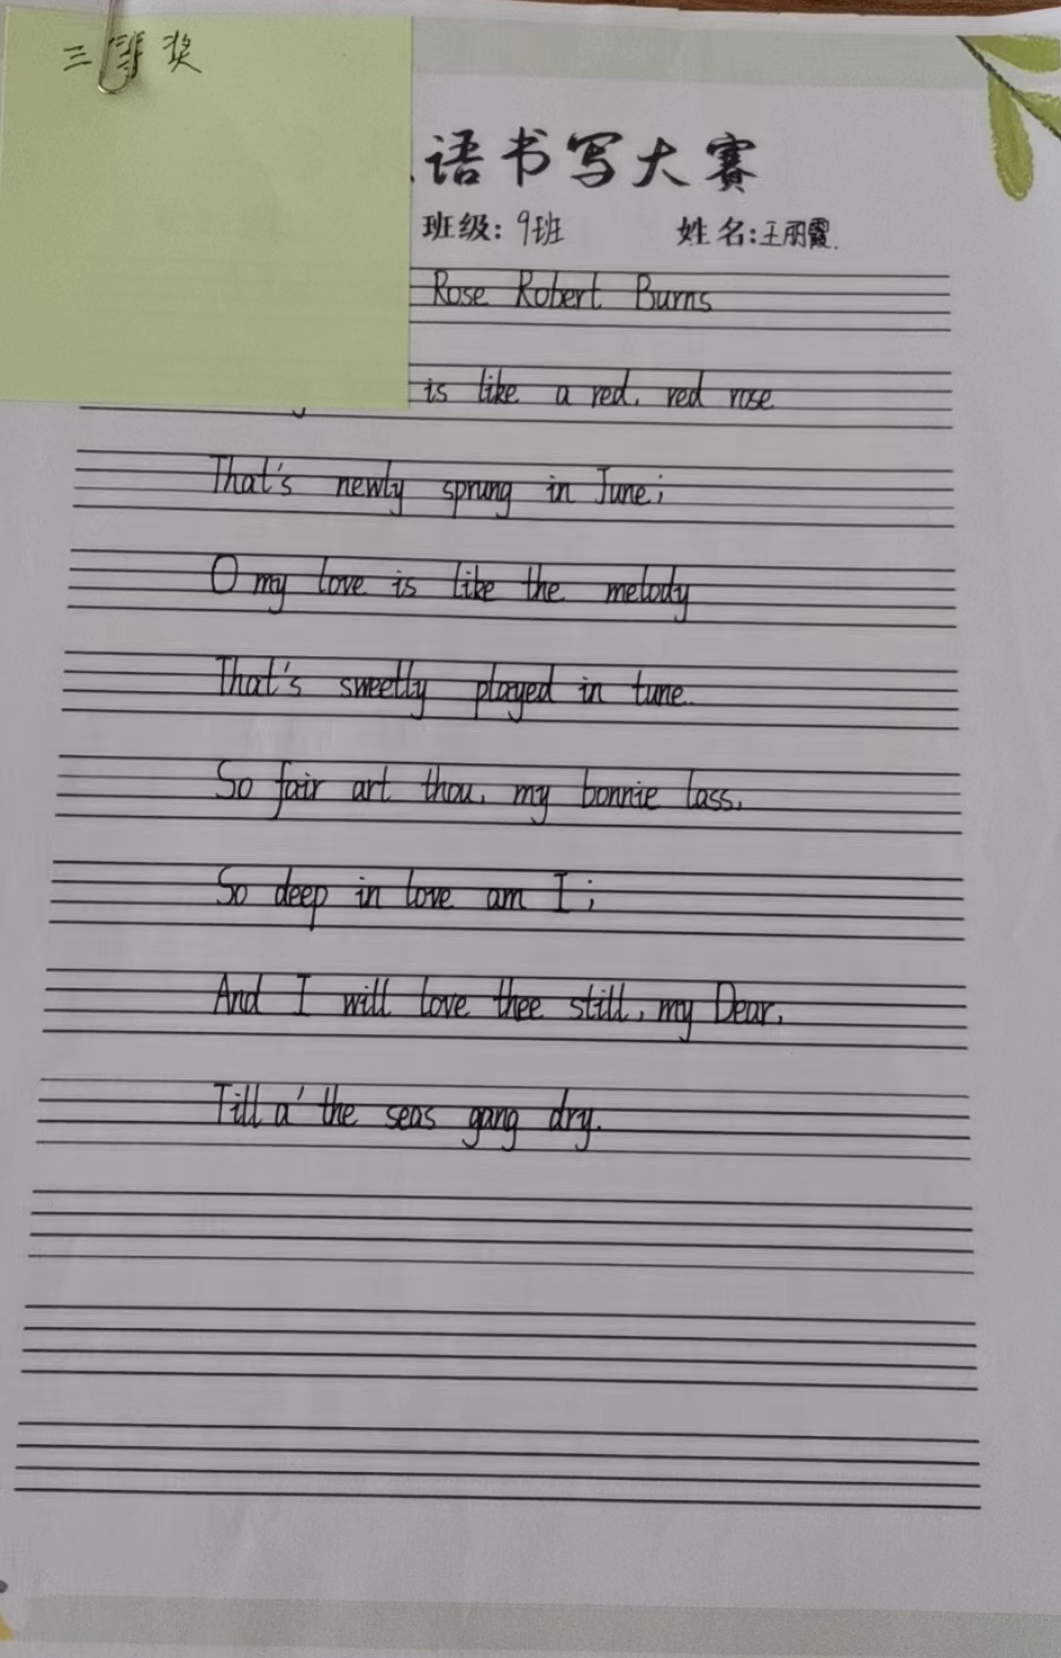 三等奖
语书写大赛
班级: 9班 姓名: 王丽霞.
Rose Robert Burns
is like a red, red rose
That's newly sprung in June;
O my love is like the melody
That's sweetly played in tune.
So fair art thou, my bonnie lass,
So deep in love am I;
And I will love thee still, my Dear,
Till a' the seas gang dry.